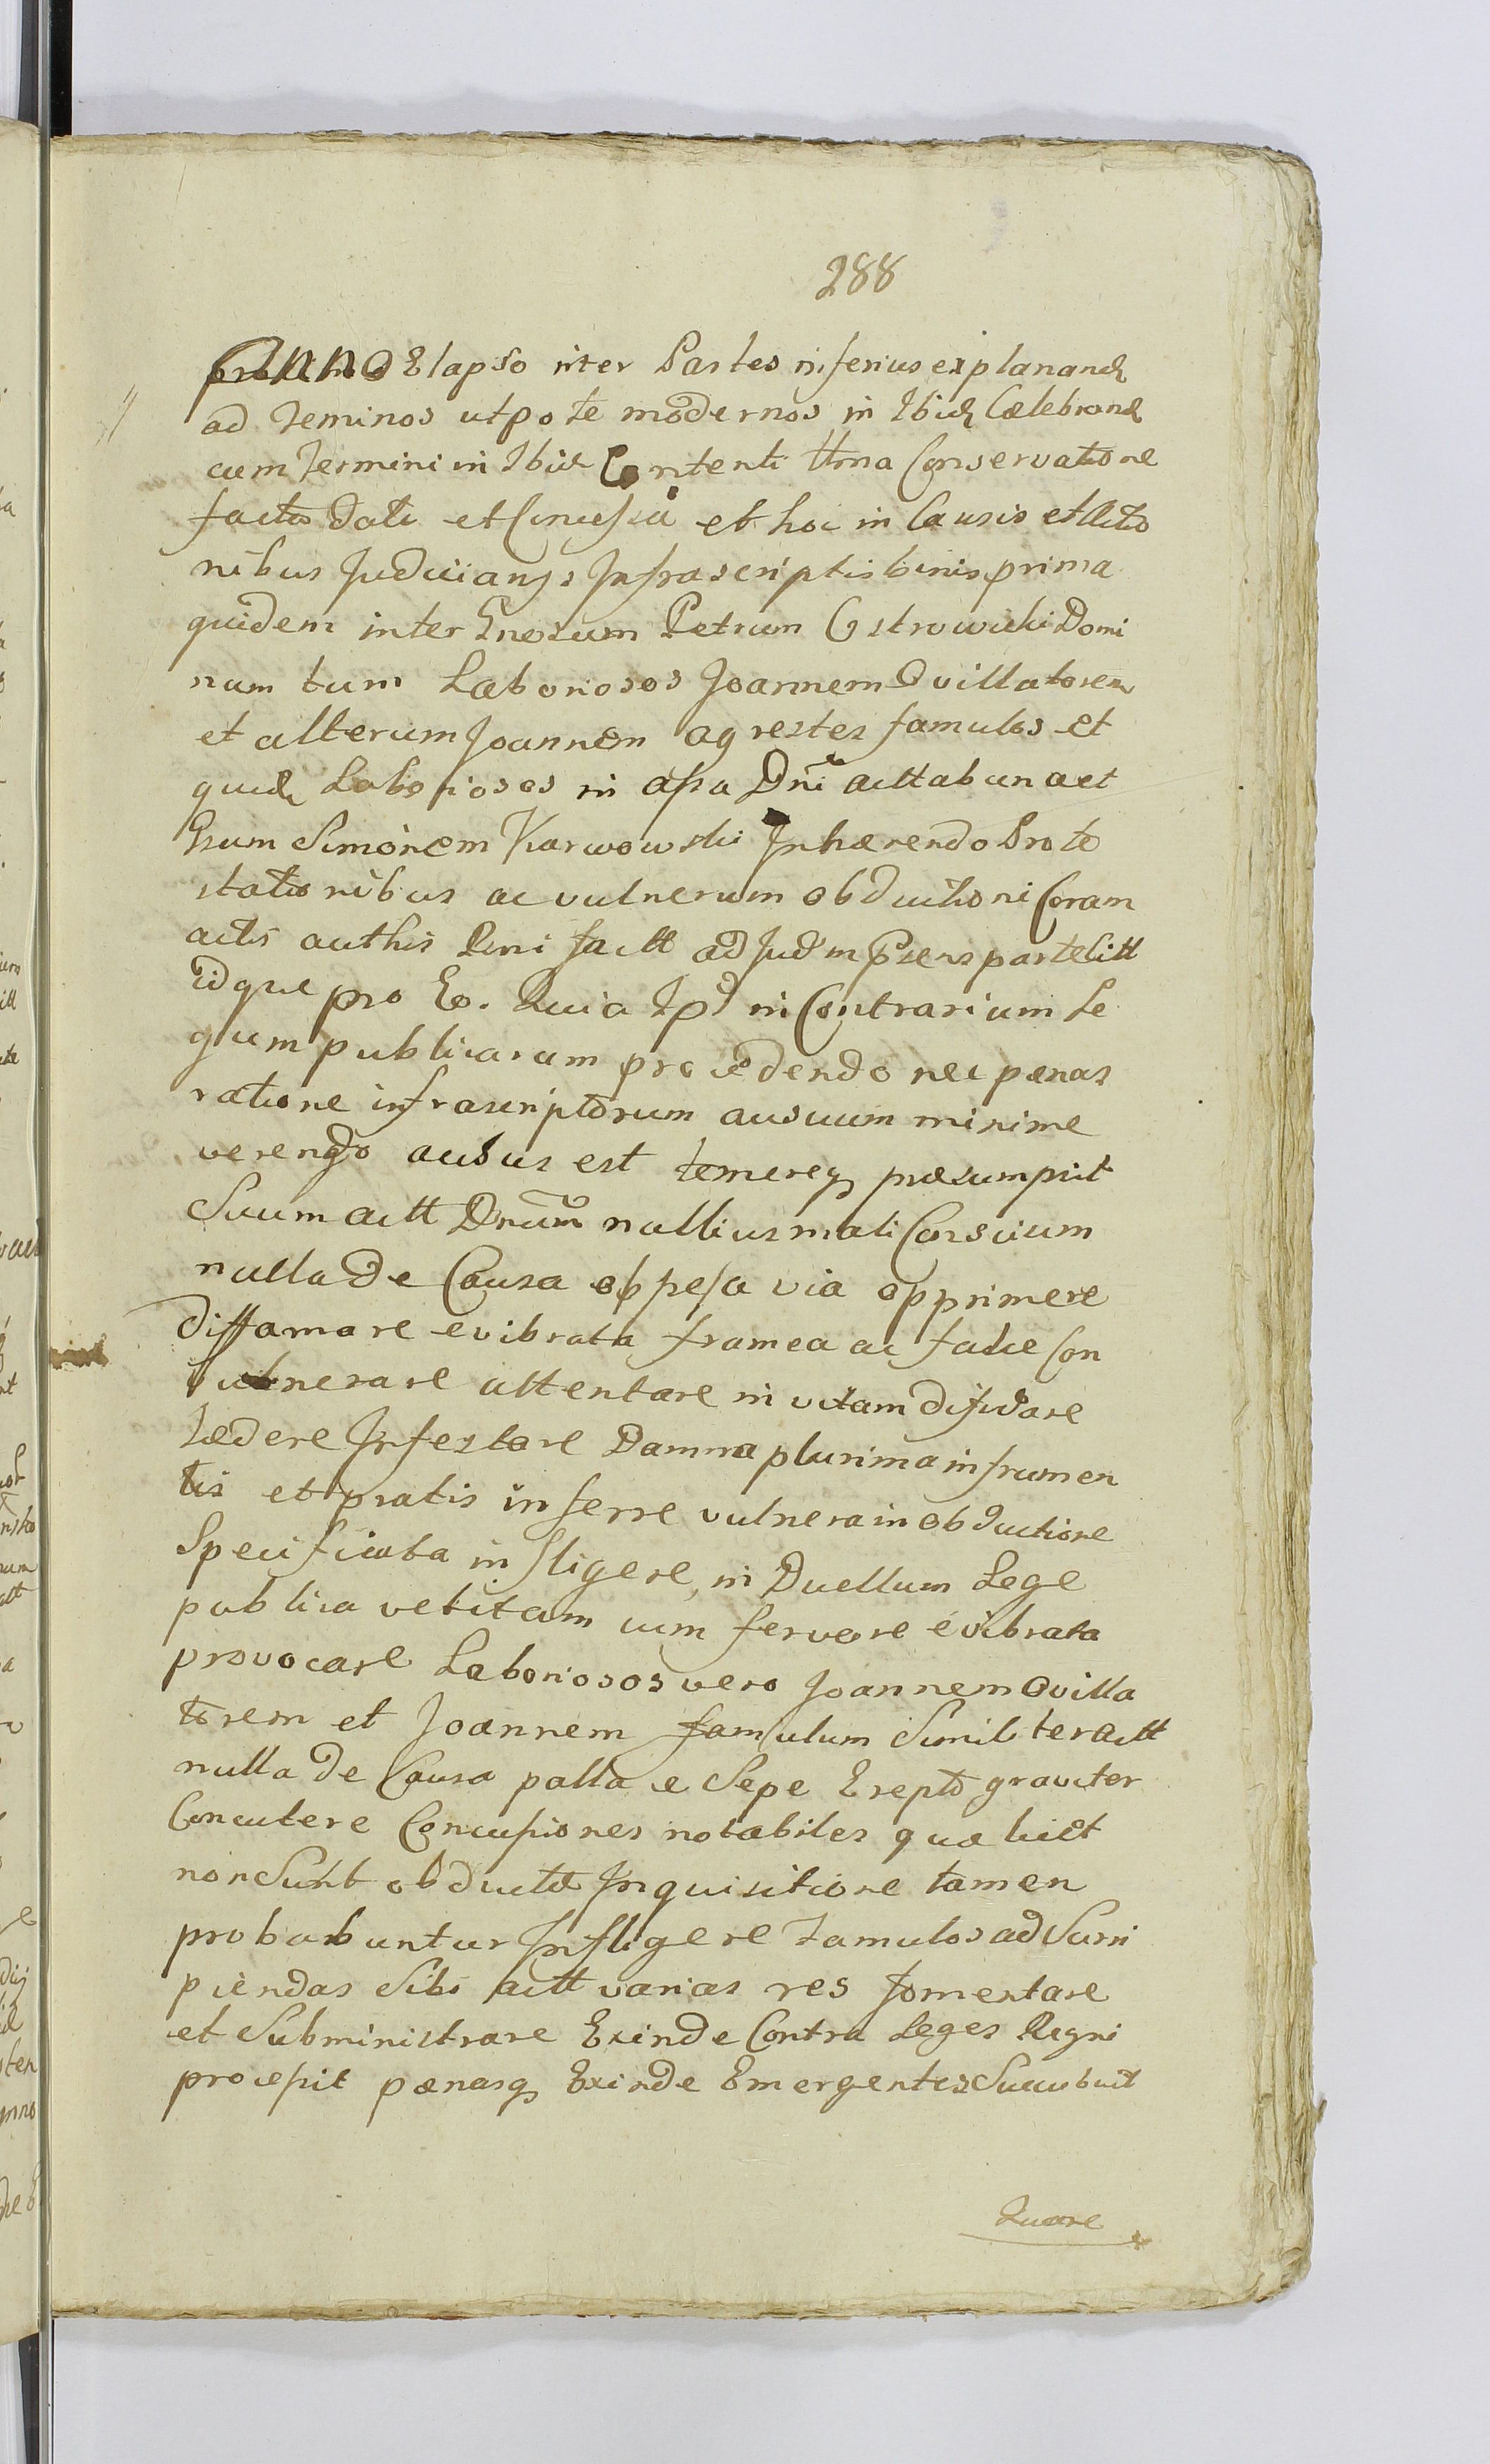 288
Anno Elapso inter Partes inferius explanand
ad Teminos utpote modernos in Ibid Cælebrand
cum Termini in Ibid Contenti Conservatione
facta Dati et Concessa et hoc in Causis et Actio
nibus Judicianis Infrascriptis binis prima
quidem inter Gnosum Petrum Ostrowicki Domi
num tum Laboriosos Joannem Ovillatorem
et alterum Joannem agrestes famulos et
quid Laboriosos in assa Dni actt ab una et
Gsum Simonem Karwowski Inhærendo Prote
stationibus ac vulnerum obductioni Coram
actis authis Pnni factt ad Judm Psens parte Citt
idque pro Eo. Quia Ipse in Contrarium Le
gum publicarum procedendo nec pænas
ratione infrascriptorum ausuum minime
verendo ausus est temereq præsumpsit
Suum actt Dnum nullius mali Conscium
nulla de Causa obpessa via opprimere
diffamare evibrata framea ac falce Con
vulnerare attentare in vitam difidare
Lædere Infestare Damna plurima in frumen
tis et pratis inferre vulnera in obductione
Specificata infligere, in Duellum Lege
publica vetitam cum fervore evibrata
provocare Laboriosos vero Joannem Ovilla
torem et Joannem famulum Similiter actt
nulla de Causa palla e Sepe Erepto graviter
Concutere Concussiones notabiles quæ licet
non Sunt obductæ Inquisitione tamen
probabuntur Infligere Famulos ad Surri
piendas Sibi actt varias res fomentare
et Subministrare Exinde Contra Leges Regni
processit pænasq Exinde Emergentes Succubuit
Quare